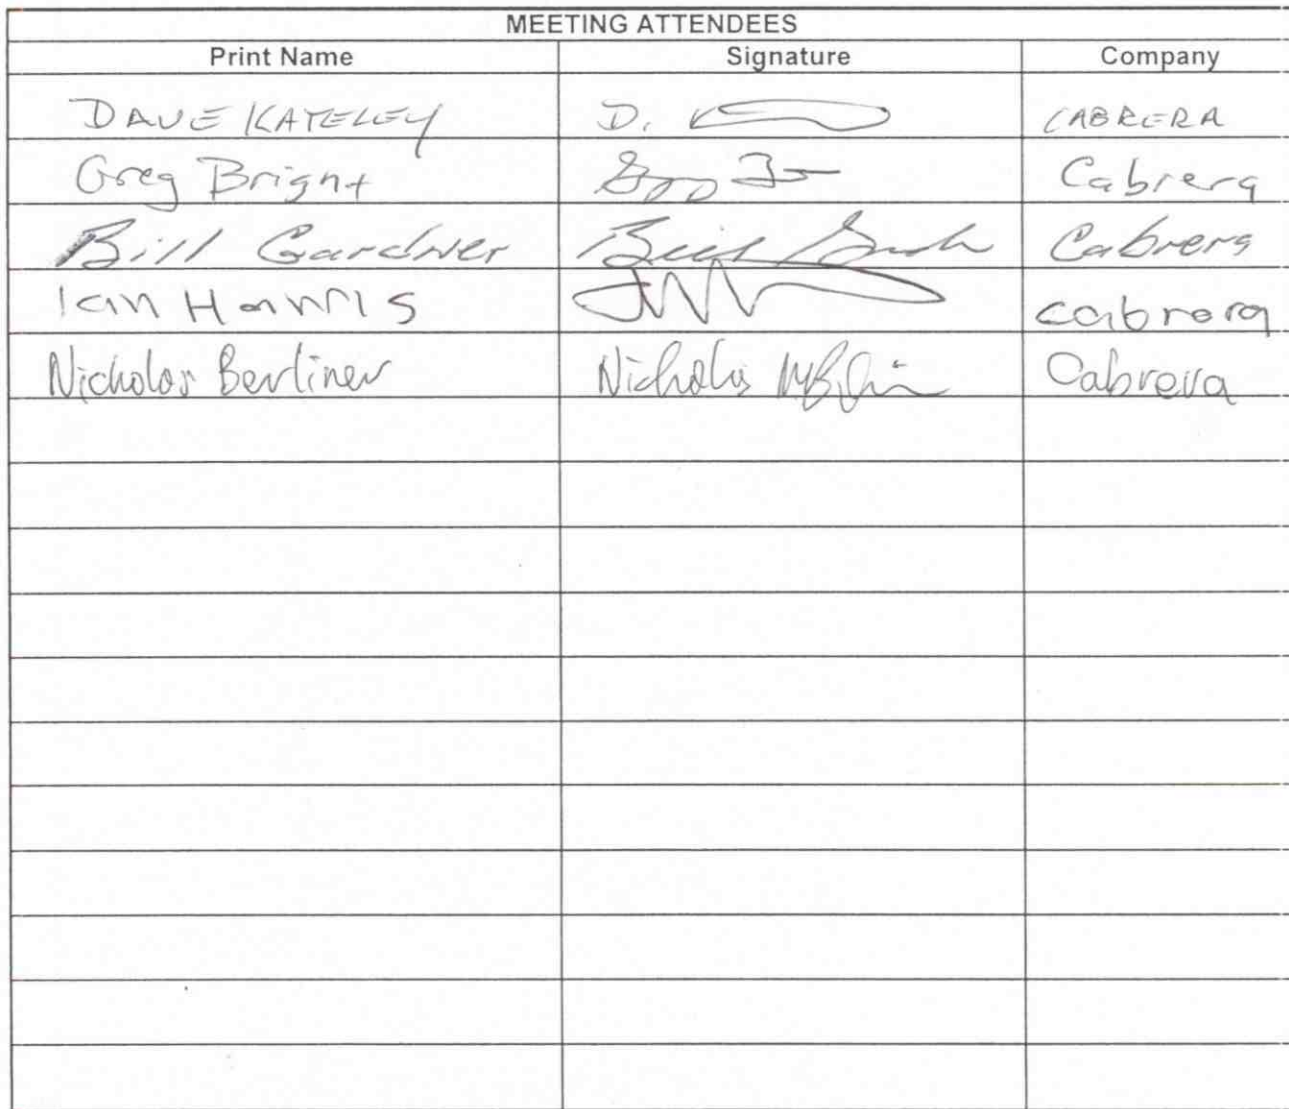 MEETING ATTENDEES
Print Name Signature Company
DAVE KATELEY D. CABRERA
Greg Bright Cabrera
Bill Gardner Bill Cabrera
Ian Harris Cabrera
Nicholas Berliner Nicholas Cabrera